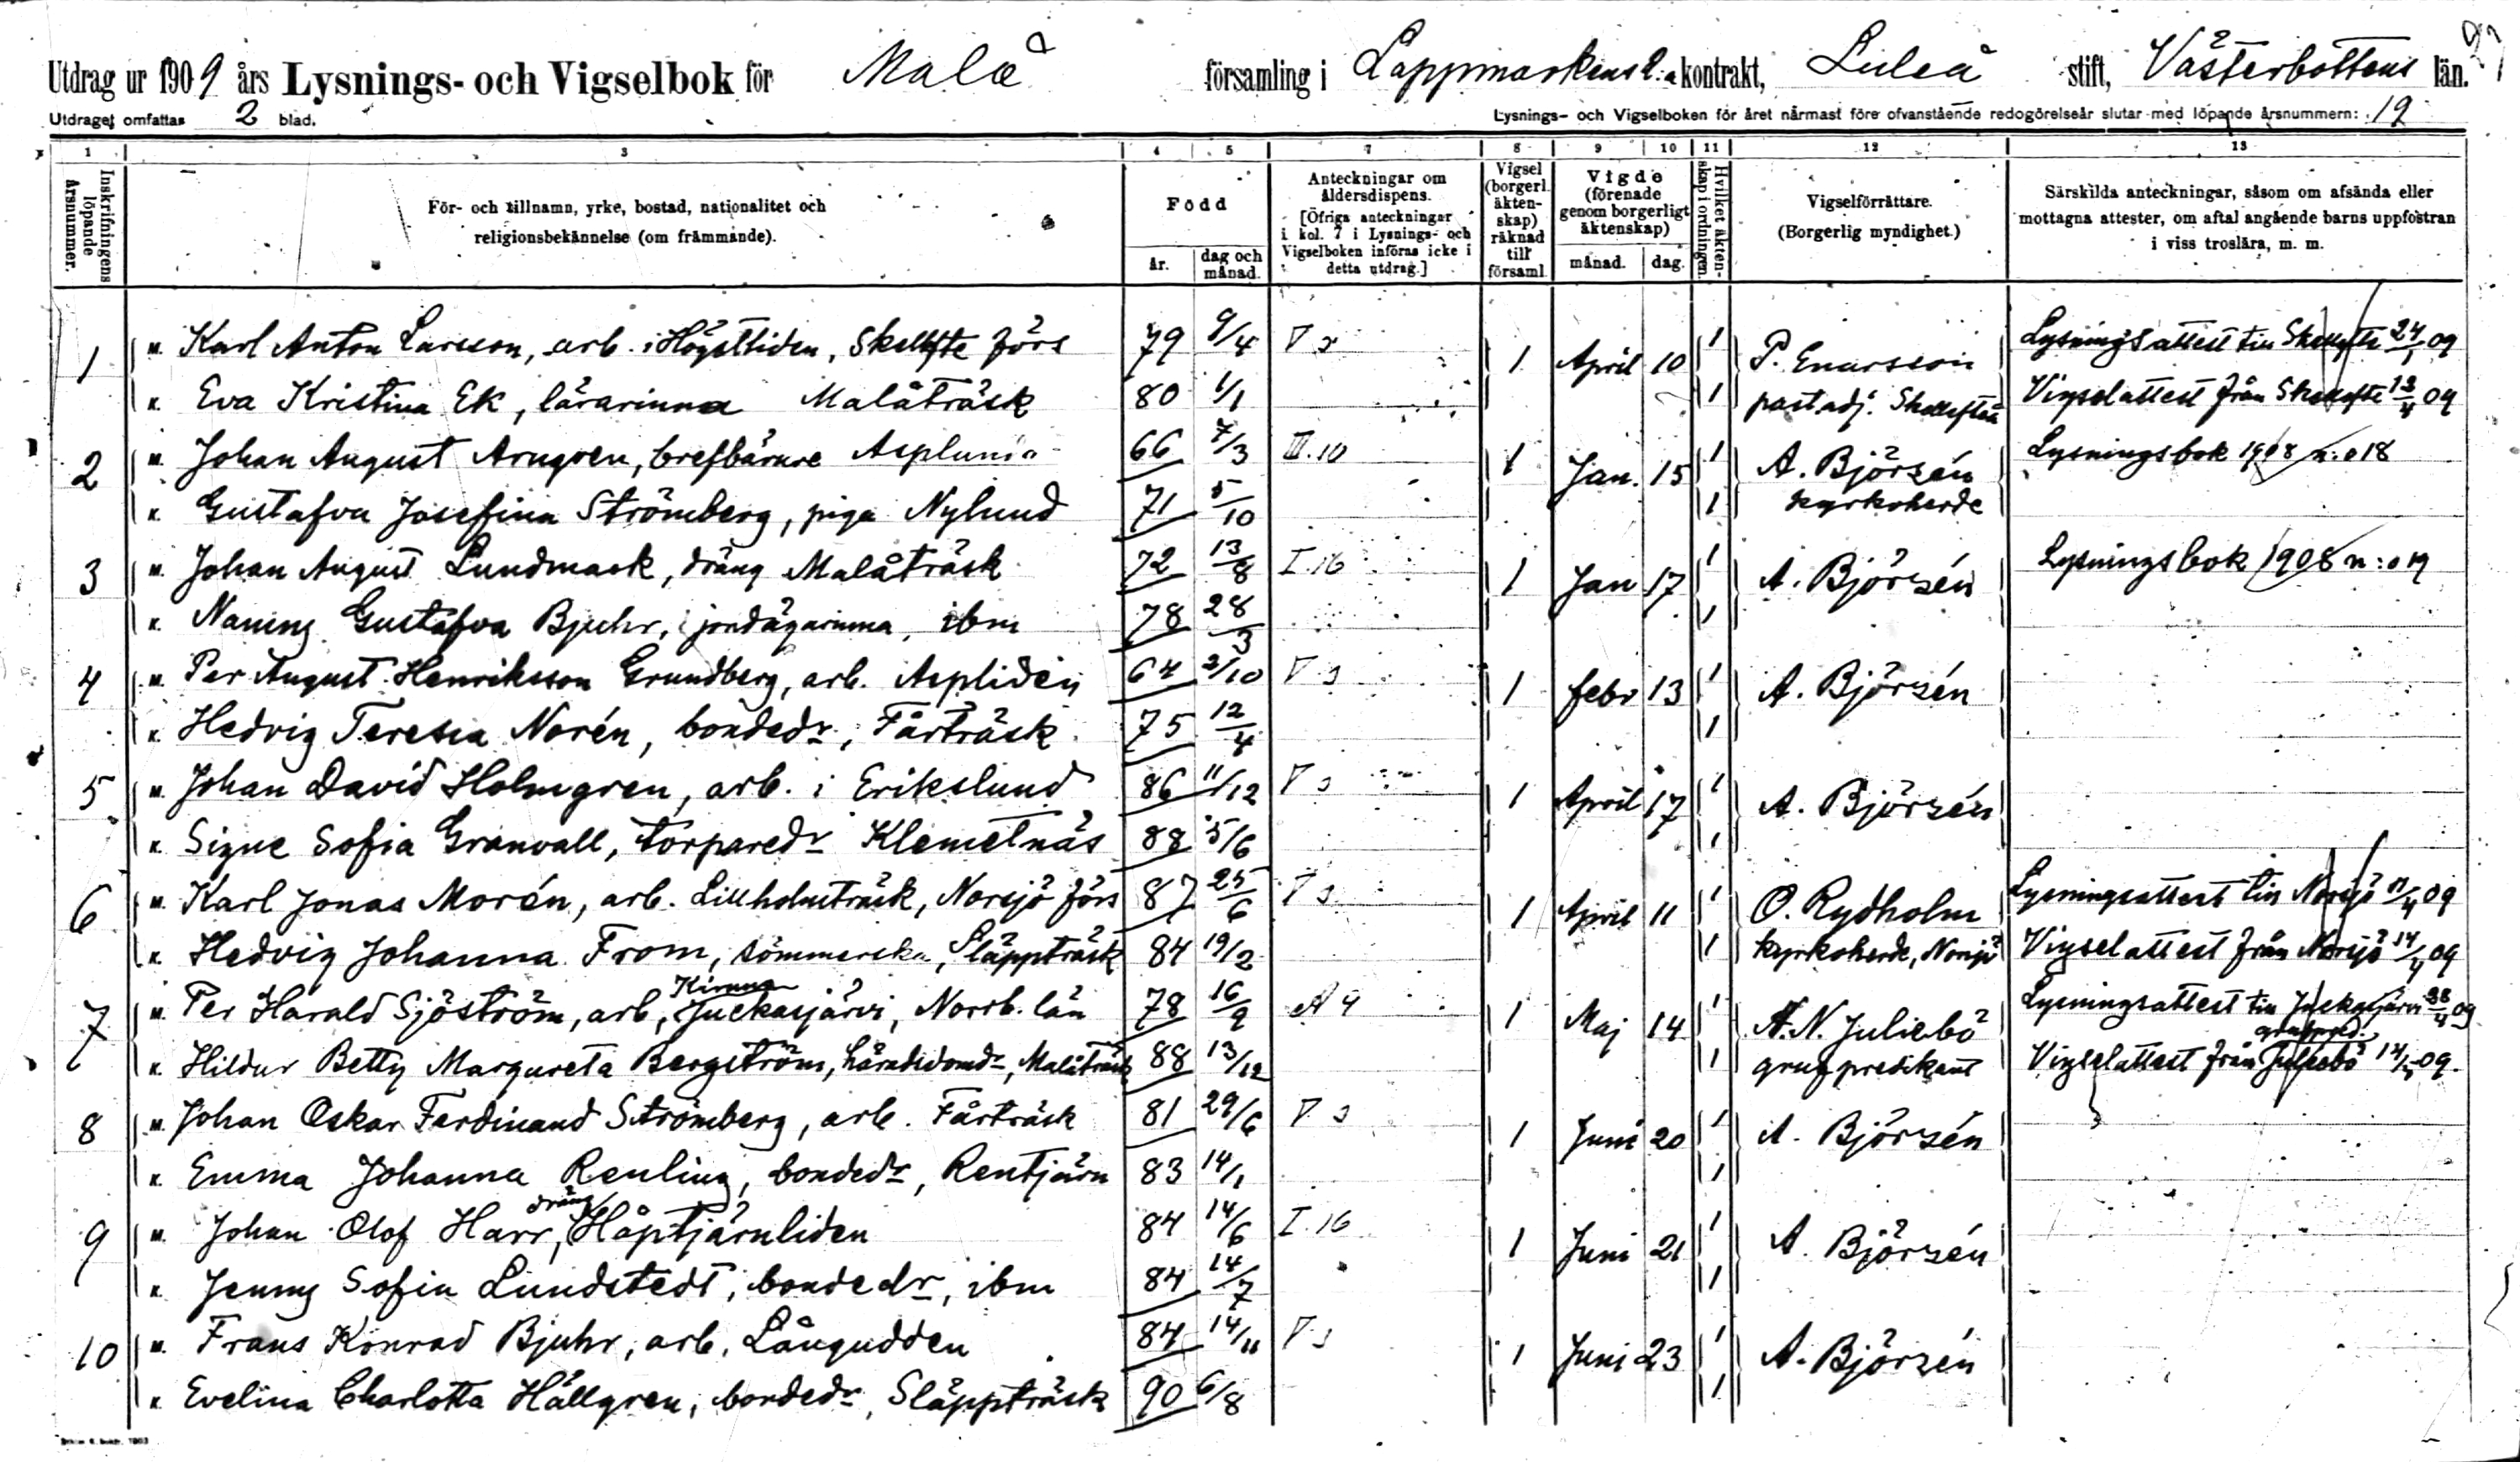 Utdrag ur 1909 års Lysnings- och Vigselbok för Malå församling i Lappmarkens 2:a kontrakt, Luleå stift, Västerbottens län.
Utdraget omfattar 2 blad. Lysnings- och Vigselboken för året närmast före ofvanstående redogörelseår slutar med löpande årsnummern: 19
1 3 4 5 7 8 9 10 11 12 13
Inskrifningens löpande årsnummer.
För- och tillnamn, yrke, bostad, nationalitet och
religionsbekännelse (om främmande).
Född
år. dag och månad.
Anteckningar om
åldersdispens.
[Öfriga anteckningar
i kol. 7 i Lysnings- och
Vigselboken införas icke i
detta utdrag.]
Vigsel
(borgerl.
äkten-
skap)
räknad
till
församl.
Vigde
(förenade
genom borgerligt
äktenskap)
månad. dag.
Hvilket äkten-
skap i ordningen.
Vigselförrättare.
(Borgerlig myndighet.)
Särskilda anteckningar, såsom om afsända eller
mottagna attester, om aftal angående barns uppfostran
i viss troslära, m. m.
1 M. Karl Anton Larsson, arb. i Högstliden, Skellefte förs 79 9/4 V 3 1 April 10 1 P. Enarsson Lysningsattest till Skellefte 24/1 09
K. Eva Kristina Ek, lärarinna Malåträsk 80 1/1 1 past.adj. Skellefteå Vigselattest från Skellefte 13/4 09
2 M. Johan August Arngren, brefbärare Asplund 66 7/3 III.10 1 Jan. 15 1 A. Björzén Lysningsbok 1908 n:o 18
K. Gustafva Josefina Strömberg, piga Nylund 71 5/10 1 kyrkoherde
3 M. Johan August Lundmark, dräng Malåträsk 72 13/8 I.16 1 Jan 17 1 A. Björzén Lysningsbok 1908 n:o 19
K. Nanny Gustafva Bjuhr, jordägarinna, ibm 78 28/3 1
4 M. Per August Henriksson Grundberg, arb. Aspliden 64 2/10 V 3 1 febr 13 1 A. Björzén
K. Hedvig Teresia Norén, bondedr, Fårträsk 75 12/4 1
5 M. Johan David Holmgren, arb. i Erikslund 86 11/12 V 3 1 April 17 1 A. Björzén
K. Signe Sofia Granvall, torparedr Klemetnäs 88 5/6 1
6 M. Karl Jonas Morén, arb. Lillholmträsk, Norsjö förs 87 25/6 V 3 1 April 11 1 O. Rydholm Lysningsattest till Norsjö 11/4 09
K. Hedvig Johanna From, sömmerska, Släppträsk 84 19/2 1 kyrkoherde, Norsjö Vigselattest från Norsjö 14/4 09
Kiruna
7 M. Per Harald Sjöström, arb, Juckasjärvi, Norrb. län 78 16/9 A 4 1 Maj 14 1 A. N. Juliebö Lysningsattest till Juckasjärvi 28/4 09
grufpred.
K. Hildur Betty Margareta Bergström, häradsdomdr, Malåträsk 88 13/12 1 grufpredikant Vigselattest från Juliebö 14/5 09.
8 M. Johan Oskar Ferdinand Strömberg, arb. Fårträsk 81 29/6 V 3 1 Juni 20 1 A. Björzén
K. Emma Johanna Renling, bondedr, Rentjärn 83 14/1 1
dräng
9 M. Johan Olof Harr, Håptjärnliden 84 14/6 I.16 1 Juni 21 1 A. Björzén
K. Jenny Sofia Lundstedt, bondedr, ibm 84 14/7 1
10 M. Frans Konrad Bjuhr, arb, Långudden 84 14/11 V 3 1 Juni 23 1 A. Björzén
K. Evelina Charlotta Hällgren, bondedr, Släppträsk 90 6/8 1